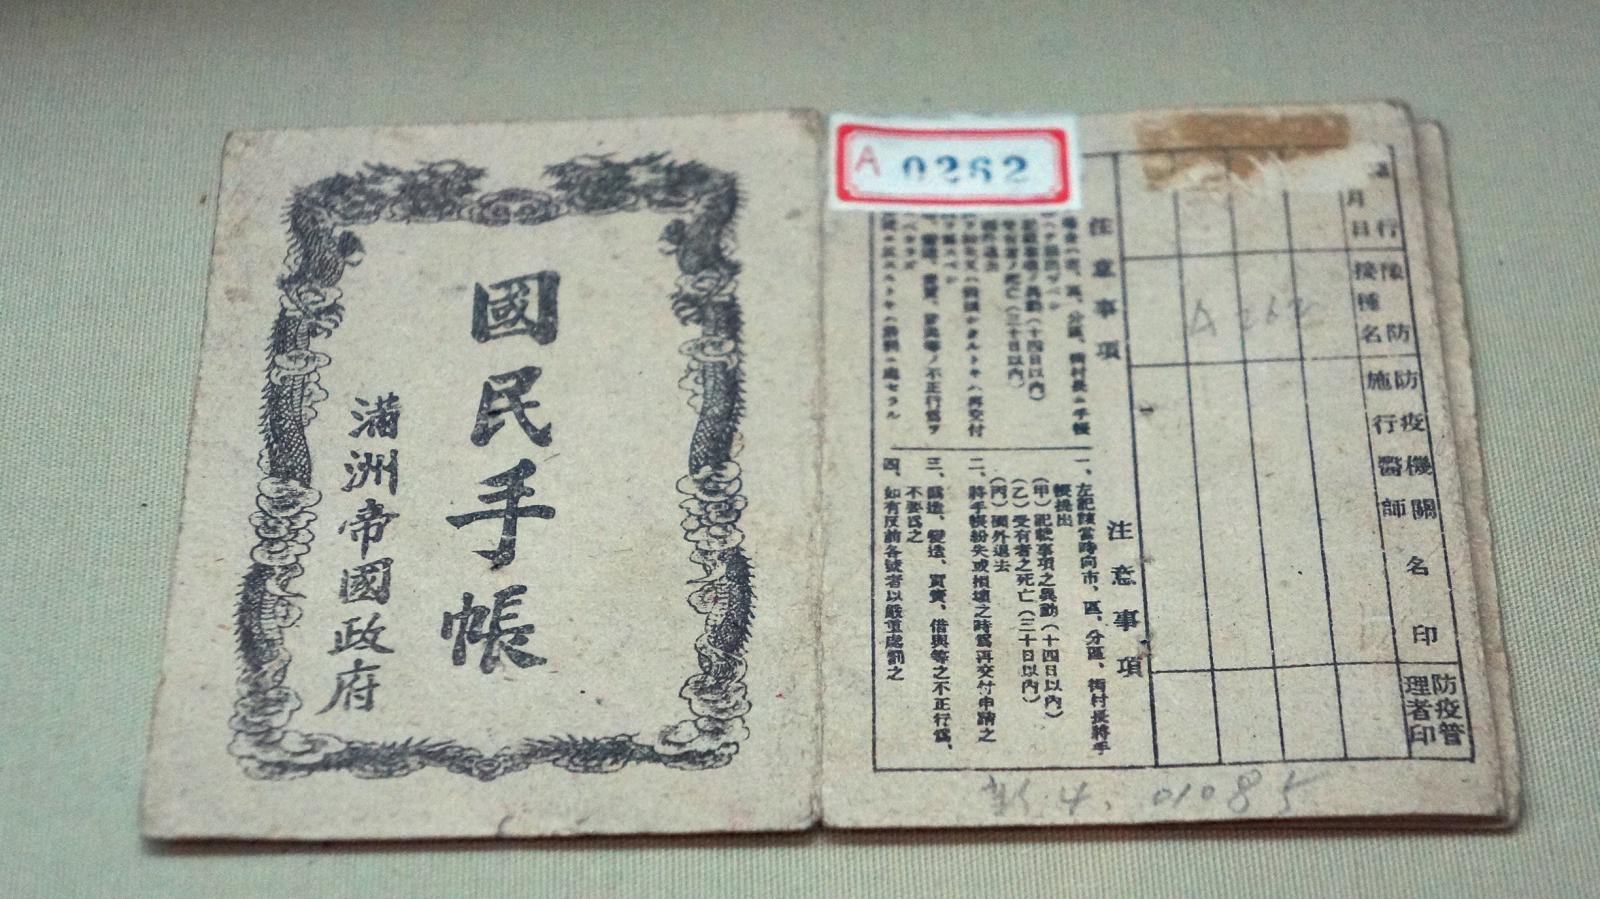 國民手帳
滿洲帝國政府
A 0262
行
月日
豫防
接種名
防疫機關
施行醫師
名印
防疫管
理者印
A 262
注意事項
記載事項ノ異動(十四日以內)
受有者ノ死亡(三十日以內)
國外退去
注意事項
一、左記該當時向市、區、分區、街村長將手
帳提出
(甲)記載事項之異動(十四日以內)
(乙)受有者之死亡(三十日以內)
(丙)國外退去
二、將手帳紛失或損壞之時爲再交付申請之
三、僞造、變造、買賣、借與等之不正行爲、
不要爲之
四、如有反前各號者以嚴重處罰之
4. 01085